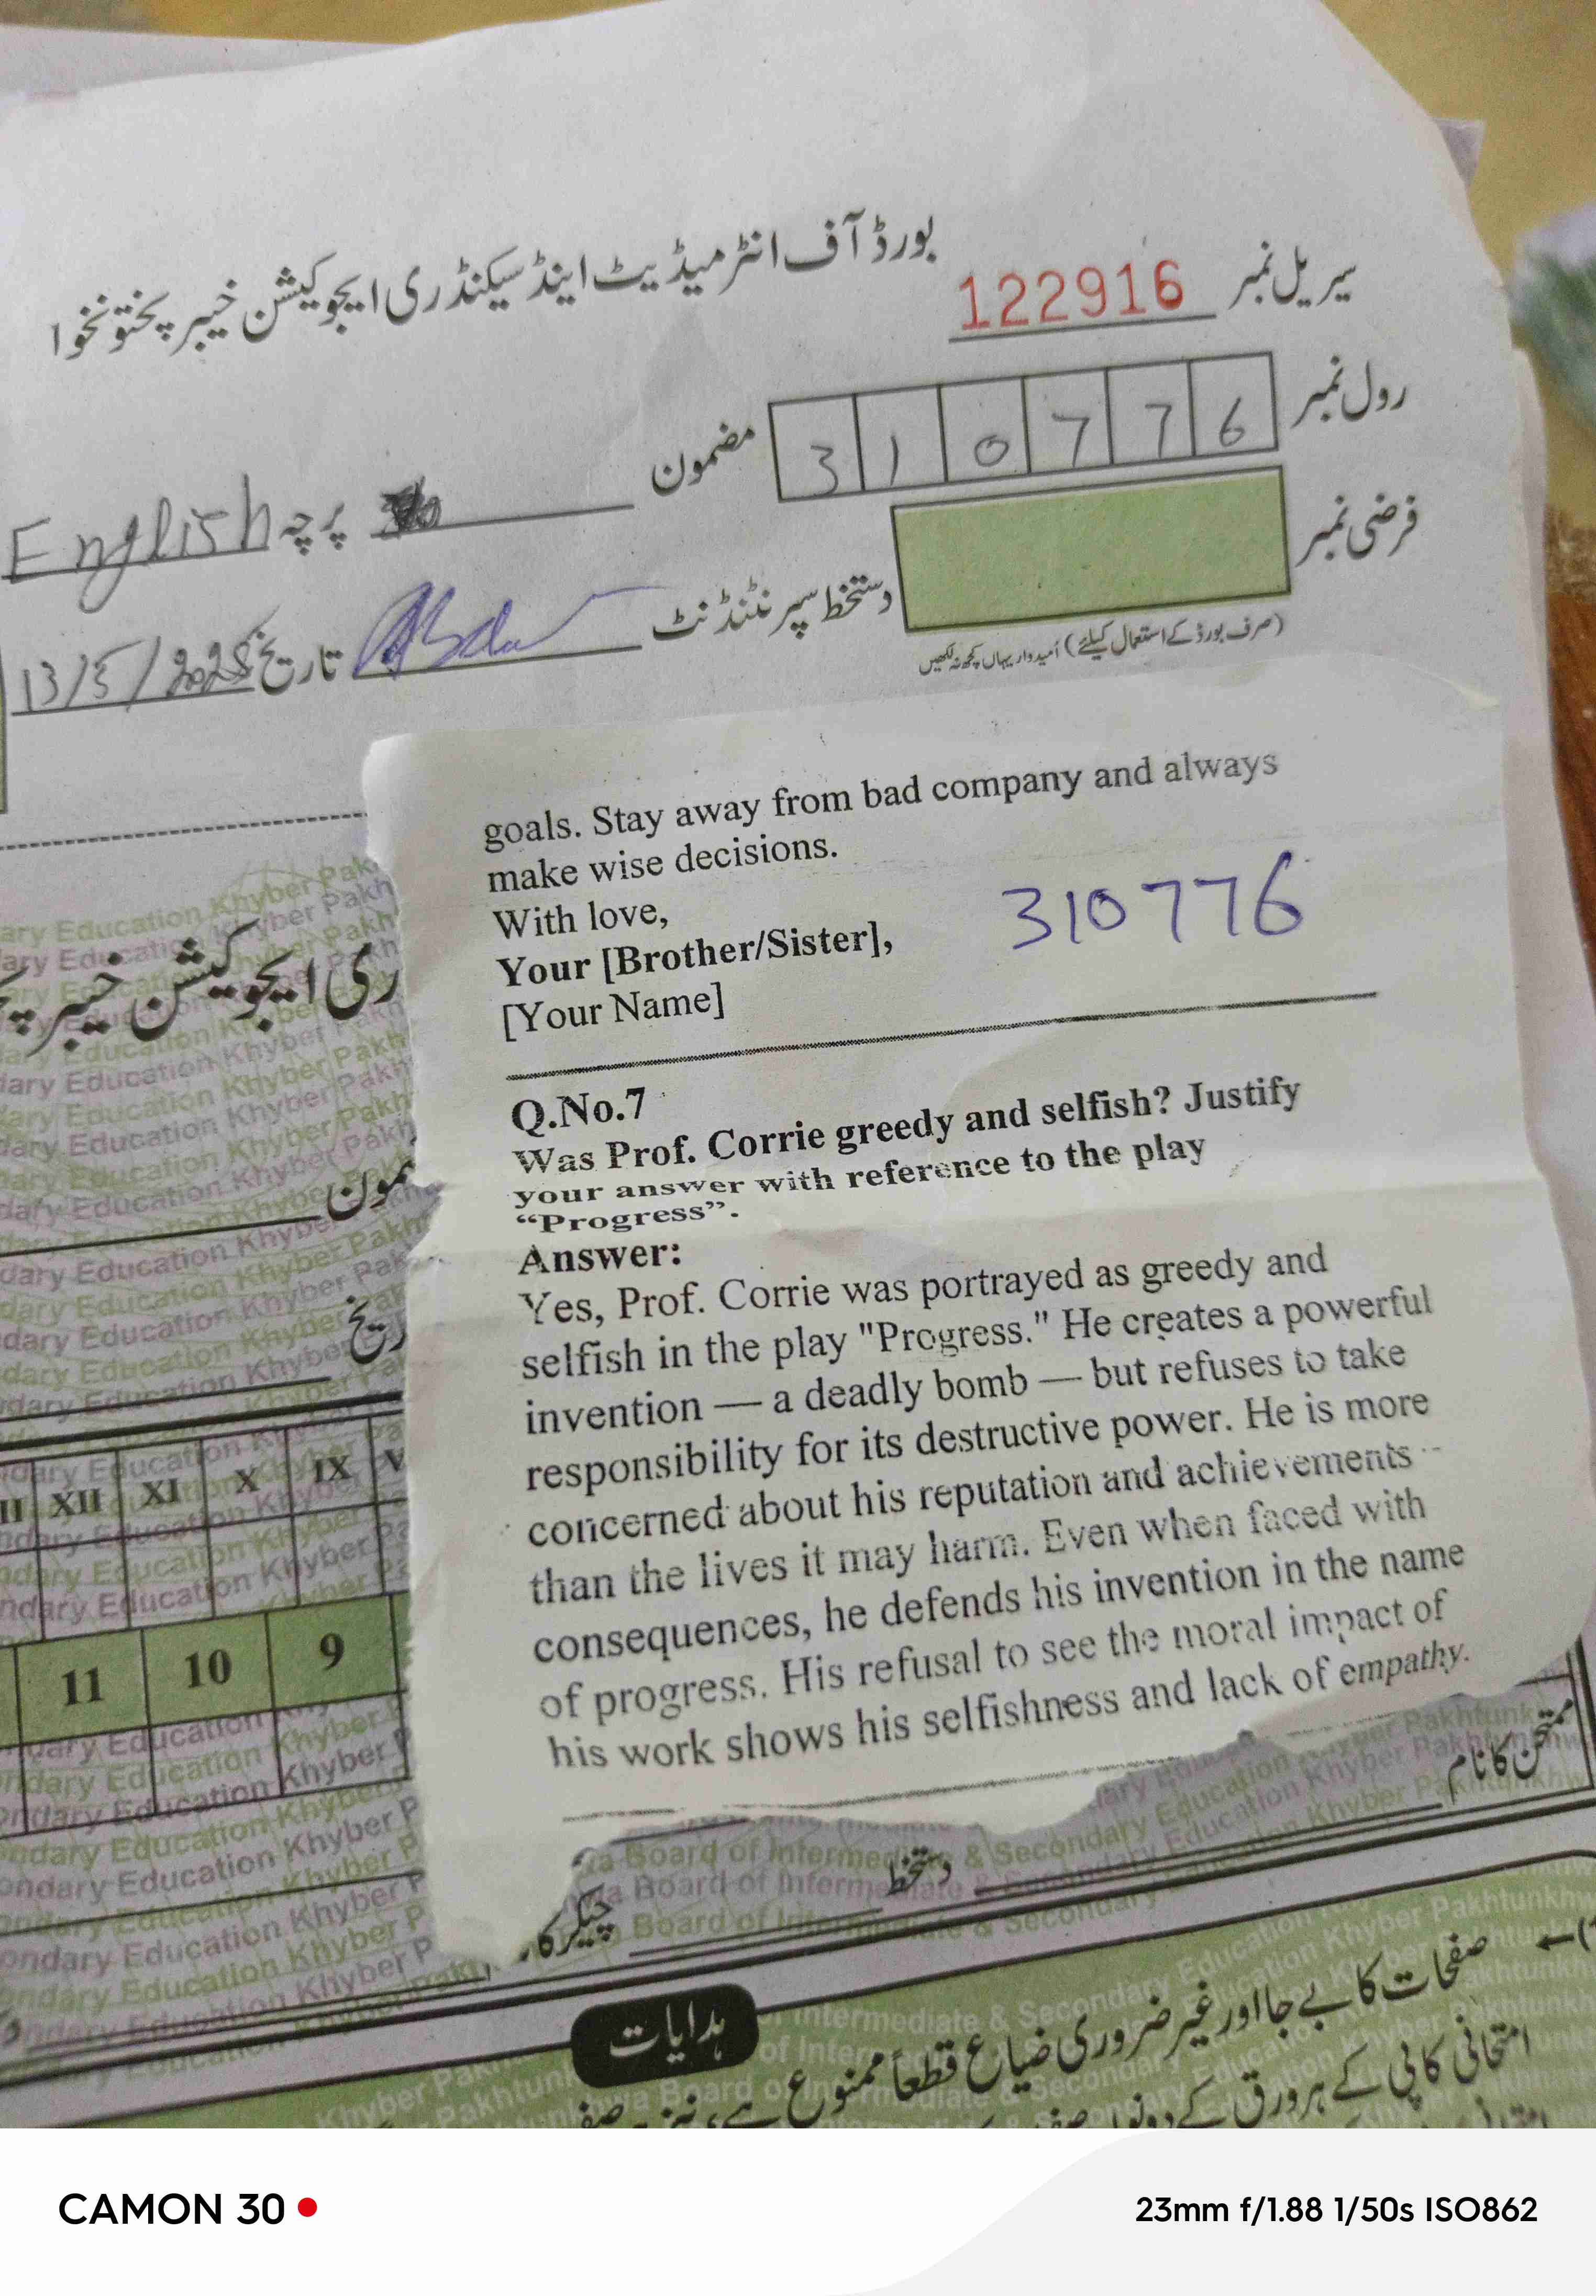 بورڈ آف انٹرمیڈیٹ اینڈ سیکنڈری ایجوکیشن خیبر پختونخوا
سیریل نمبر 122916
رول نمبر 310776
مضمون
پرچہ English
فرضی نمبر
(صرف بورڈ کے استعمال کیلئے) اُمیدوار یہاں کچھ نہ لکھیں
دستخط سپرنٹنڈنٹ
تاریخ 13/5/2025
goals. Stay away from bad company and always
make wise decisions.
With love,
Your [Brother/Sister],
[Your Name]
310776
Q.No.7
Was Prof. Corrie greedy and selfish? Justify
your answer with reference to the play
“Progress”.
Answer:
Yes, Prof. Corrie was portrayed as greedy and
selfish in the play "Progress." He creates a powerful
invention — a deadly bomb — but refuses to take
responsibility for its destructive power. He is more
concerned about his reputation and achievements
than the lives it may harm. Even when faced with
consequences, he defends his invention in the name
of progress. His refusal to see the moral impact of
his work shows his selfishness and lack of empathy.
ری ایجوکیشن خیبر
XII XI X IX
11 10 9
ممتحن کا نام
دستخط
چیکر کا
ہدایات
صفحات کا بے جا اور غیر ضروری ضیاع قطعاً ممنوع ہے
امتحانی کاپی کے ہر ورق کے دونوں
CAMON 30
23mm f/1.88 1/50s ISO862